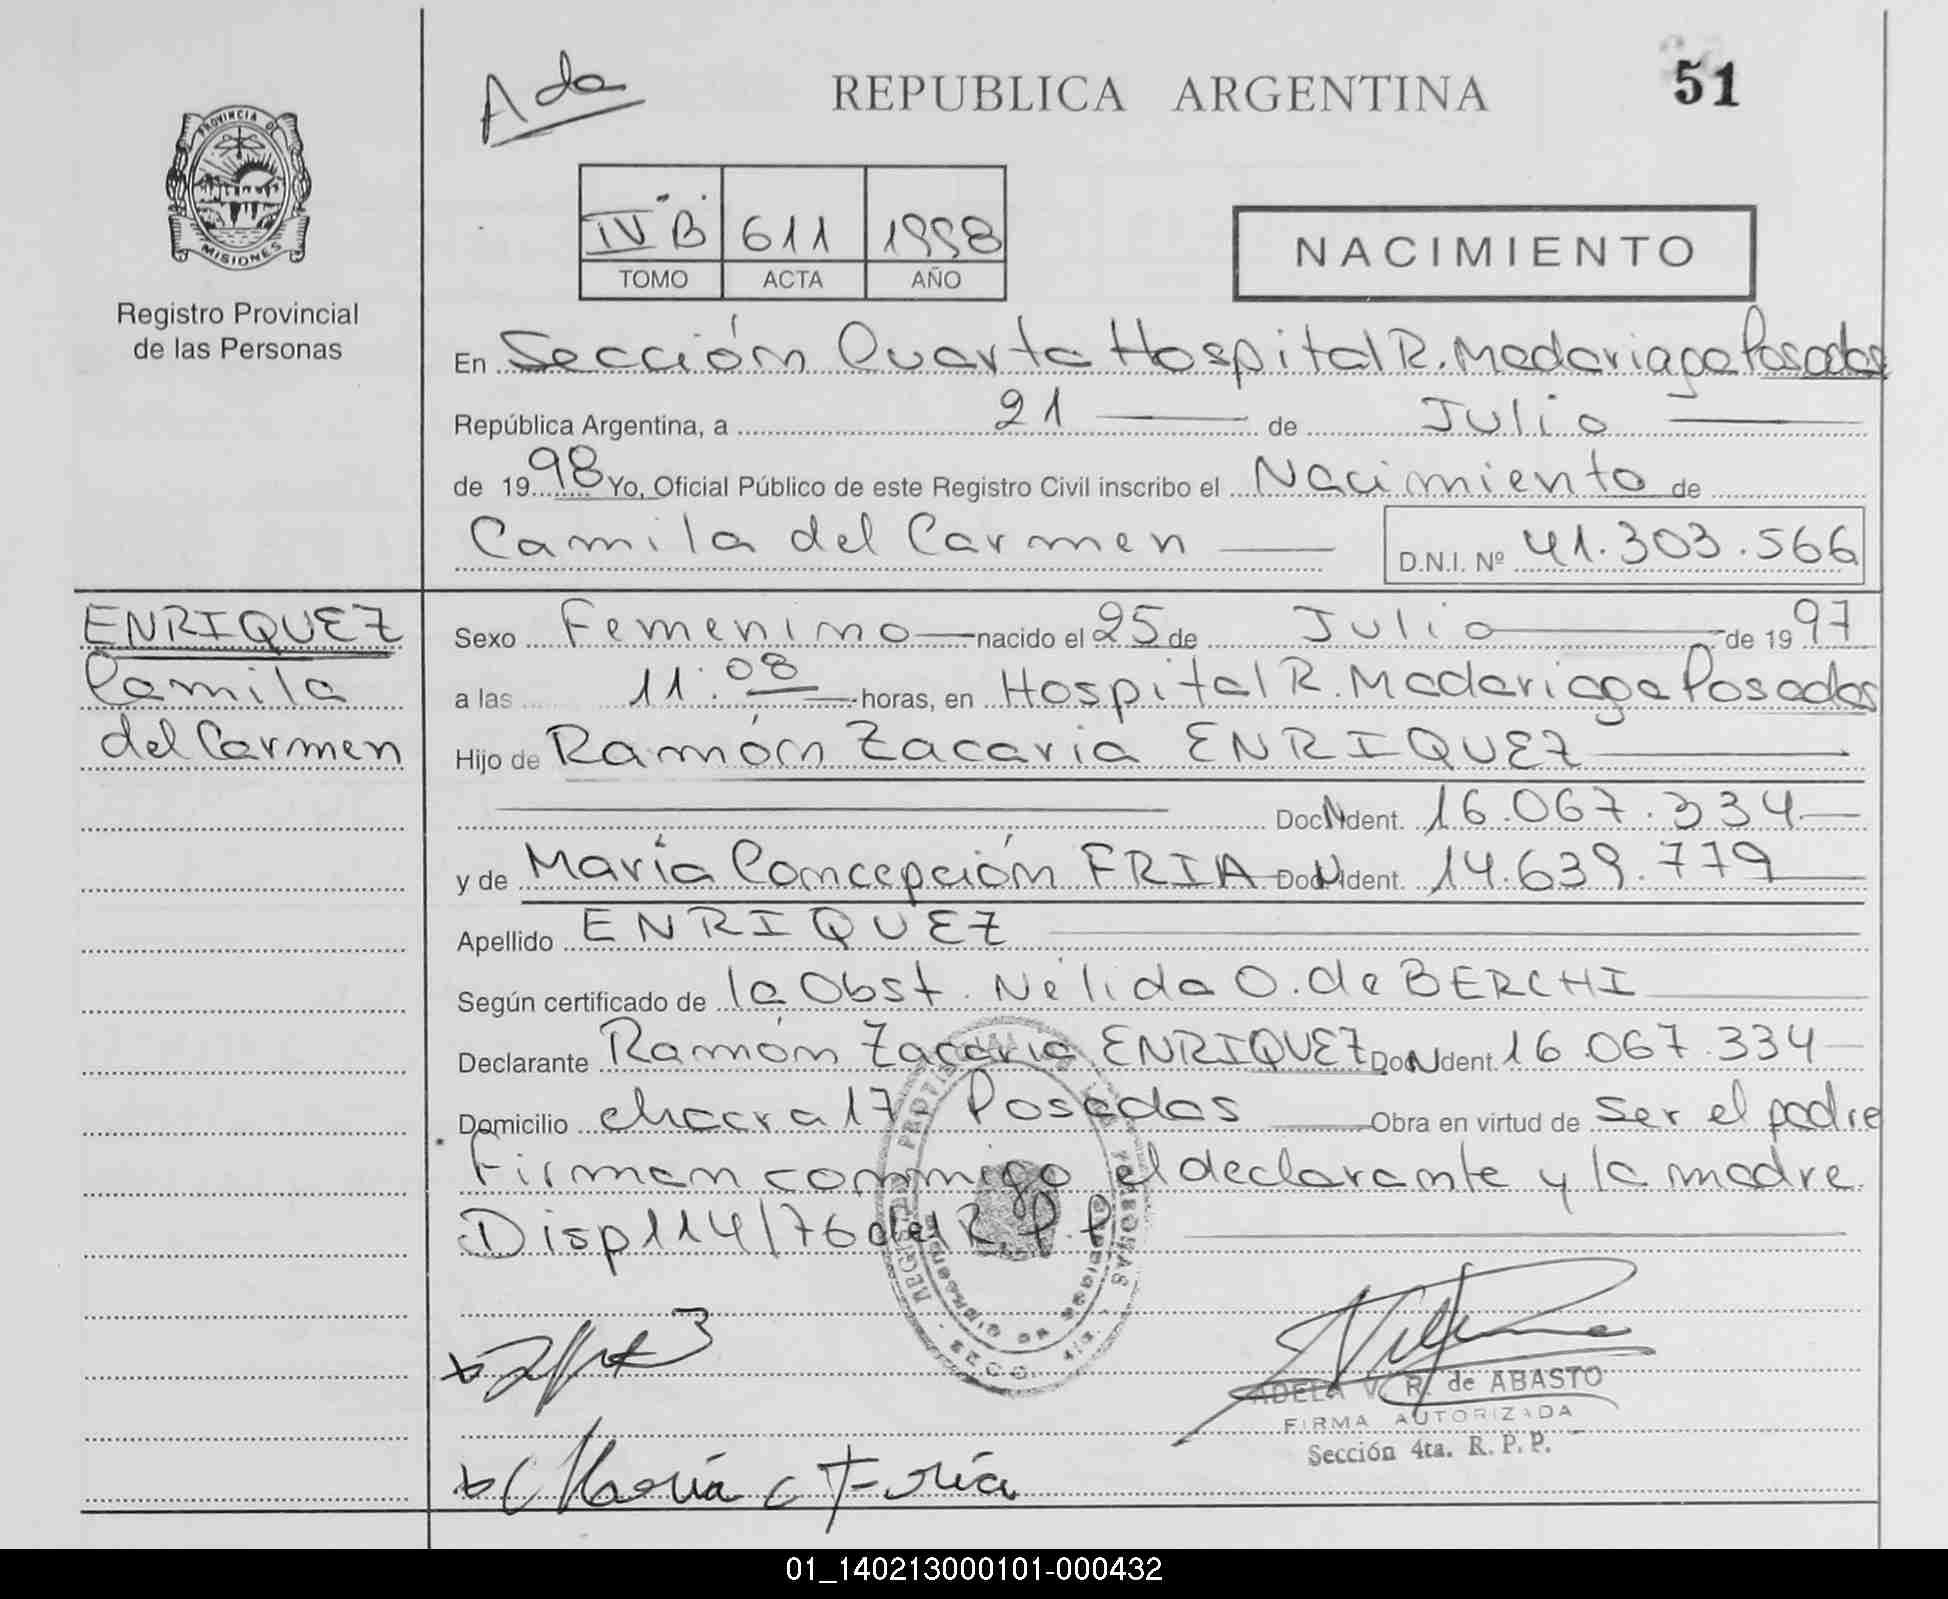 Ada
REPUBLICA ARGENTINA
51
PROVINCIA DE
MISIONES
Registro Provincial
de las Personas
IV "B" 611 1998
TOMO ACTA AÑO
NACIMIENTO
En Sección Cuarta Hospital R. Madariaga Posadas
República Argentina, a 21 de Julio
de 1998 Yo, Oficial Público de este Registro Civil inscribo el Nacimiento de
Camila del Carmen D.N.I. Nº 41.303.566
ENRIQUEZ
Camila
del Carmen
Sexo Femenino nacido el 25 de Julio de 1997
a las 11:08 horas, en Hospital R. Madariaga Posadas
Hijo de Ramón Zacaria ENRIQUEZ
Doc N Ident. 16.067.334
y de María Concepción FRIA Doc N Ident. 14.639.779
Apellido ENRIQUEZ
Según certificado de la Obst. Nélida O. de BERCHI
Declarante Ramón Zacaria ENRIQUEZ Doc N Ident. 16.067.334
Domicilio chacra 17 Posadas Obra en virtud de ser el padre
Firman conmigo el declarante y la madre.
Disp 114/76 del R.P.P
REGISTRO PROVINCIAL DE LAS PERSONAS
ADELA V. R. de ABASTO
FIRMA AUTORIZADA
Sección 4ta. R. P. P.
María C Fria
01_140213000101-000432